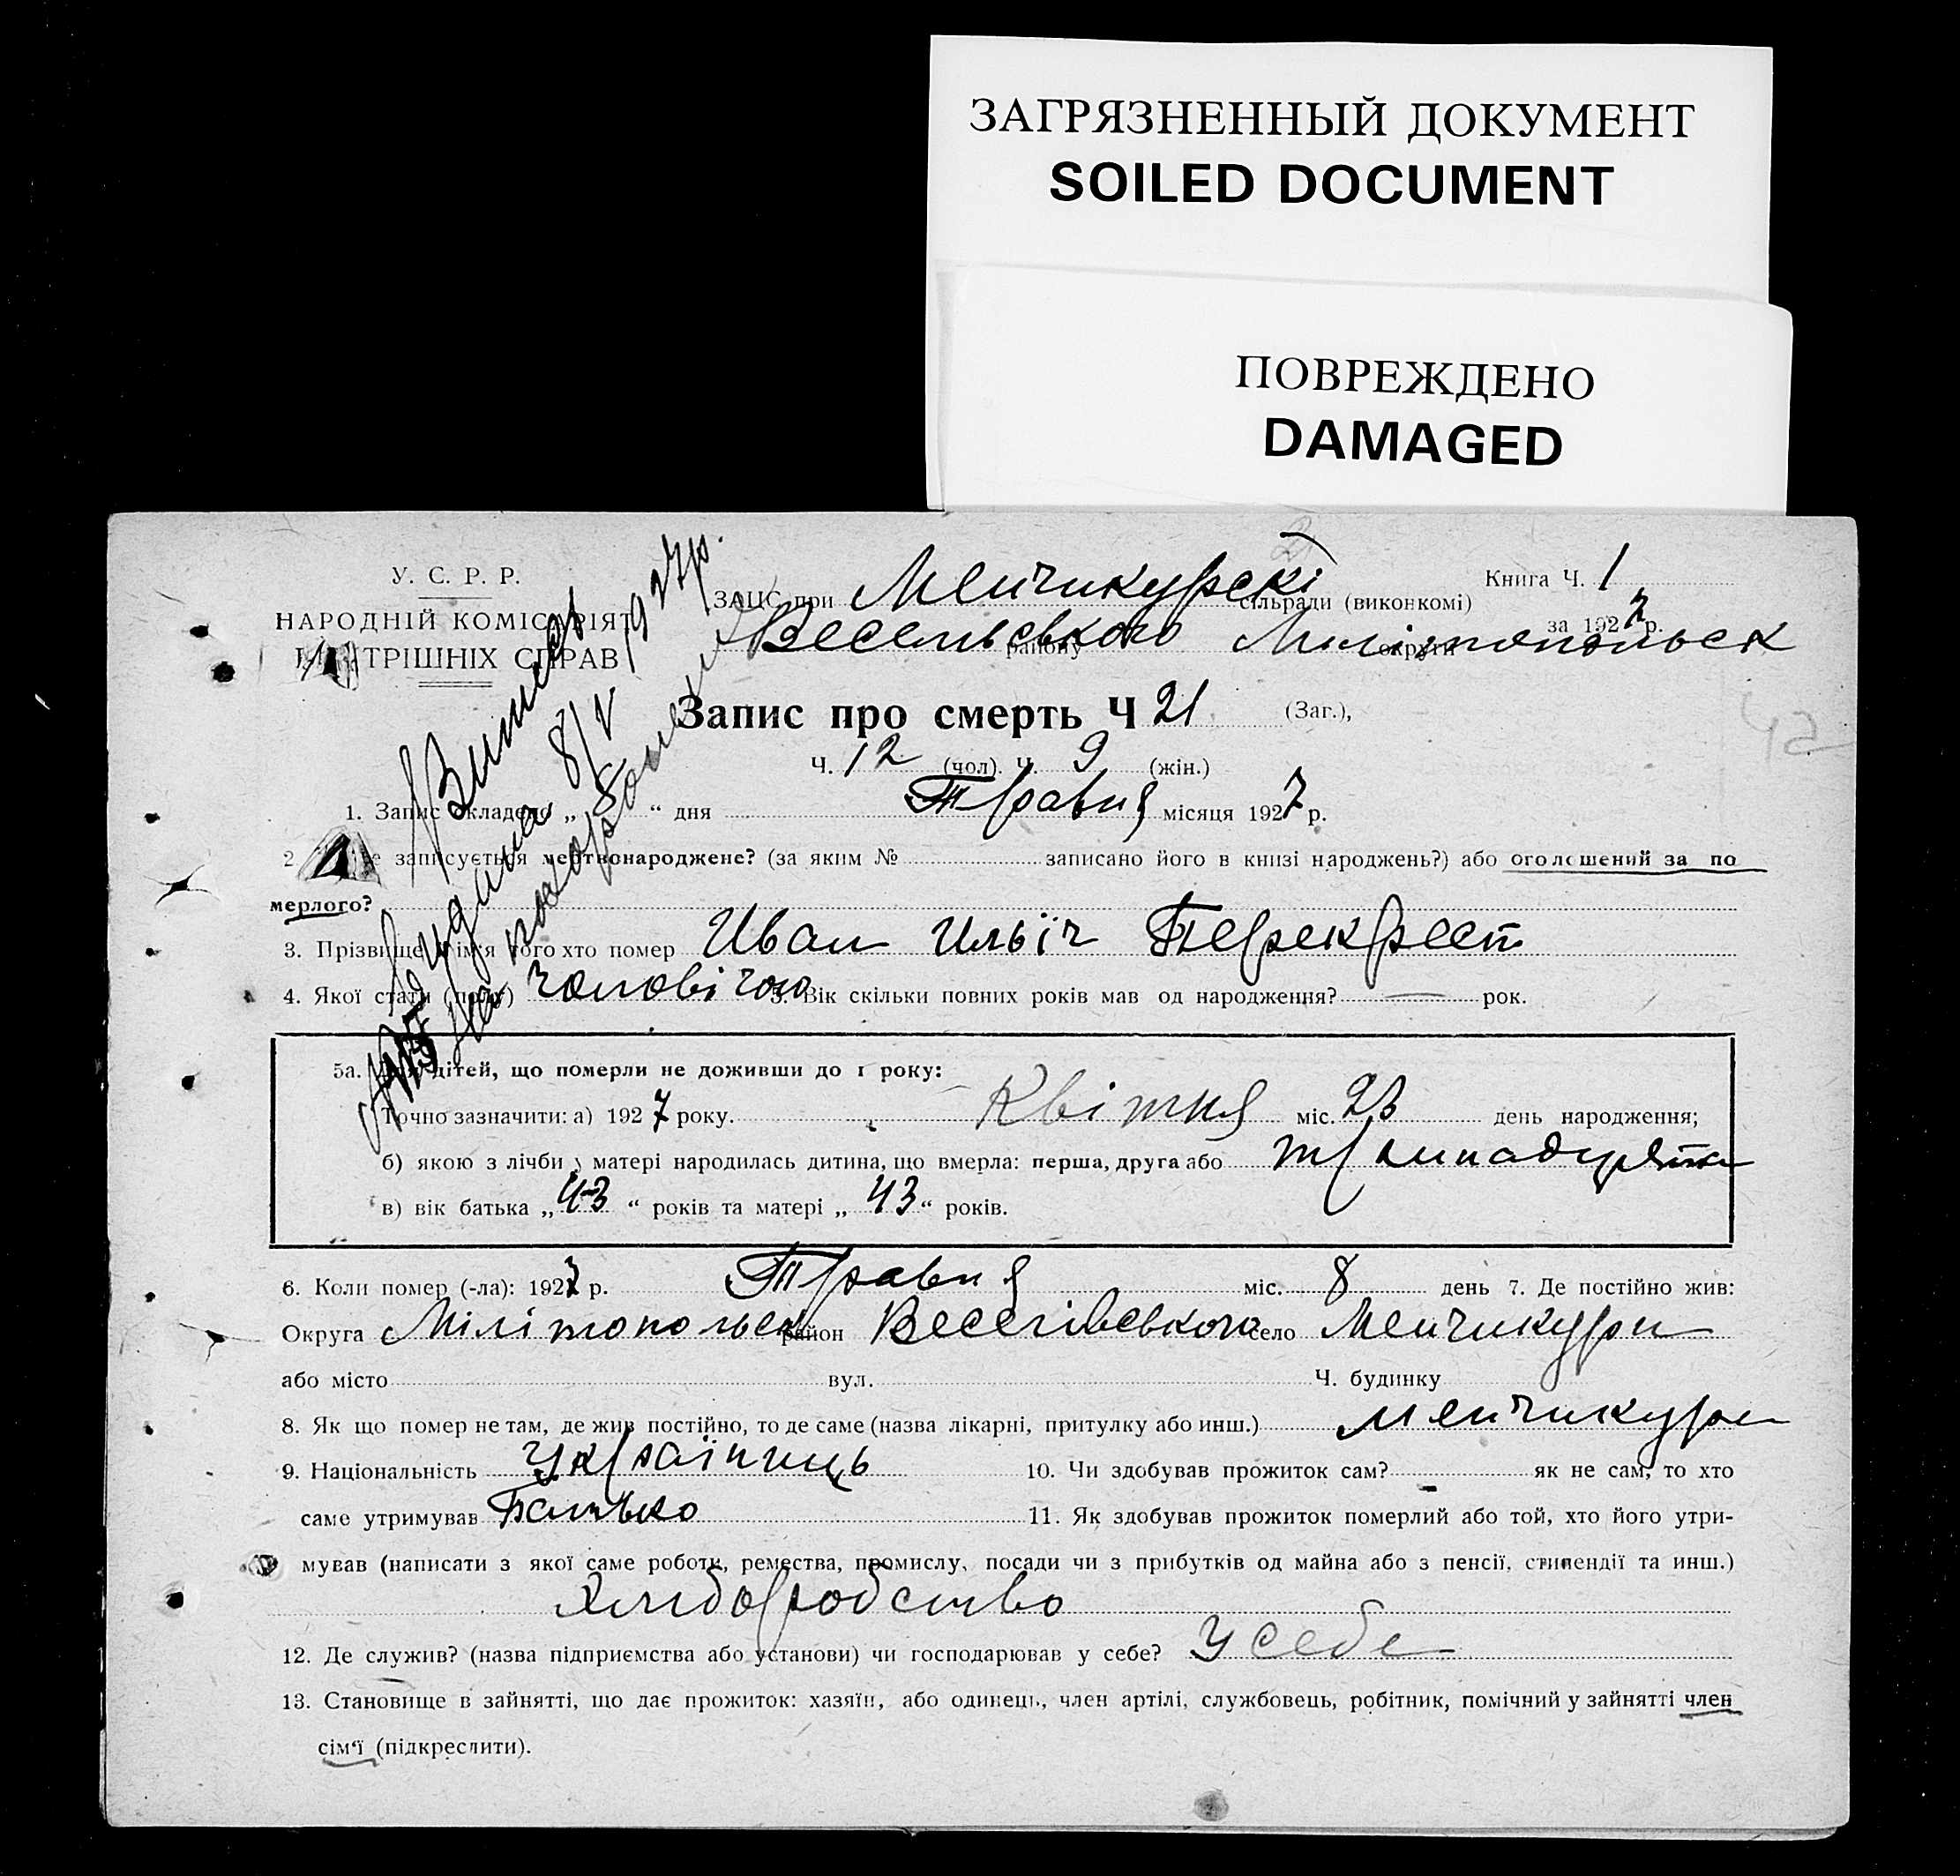 ЗАГРЯЗНЕННЫЙ ДОКУМЕНТ
SOILED DOCUMENT
ПОВРЕЖДЕНО
DAMAGED
У. С. Р. Р.
НАРОДНІЙ КОМІСАРІЯТ
ВНУТРІШНІХ СПРАВ
ЗАЦС при Менчикурскі сільради (виконкомі)
Книга Ч. 1
за 1927 р.
Веселівського району Милітопольск округи
Запис про смерть Ч 21 (Заг.),
Ч. 12 (чол). Ч. 9 (жін.)
Витяг
видана 8/V 1927р.
на похорони
1. Запис складено „ 8 “ дня Травня місяця 1927 р.
2 записується мертвонароджене? (за яким № записано його в книзі народжень?) або оголошений за по
мерлого?
3. Прізвище ім'я того хто помер Иван Ильїч Перекрест
4. Якої стати (полу) чоловічою 5. Вік скільки повних років мав од народження? — рок.
5а. Для дітей, що померли не доживши до 1 року:
Точно зазначити: а) 1927 року. Квітня міс. 23 день народження;
б) якою з лічби у матері народилась дитина, що вмерла: перша, друга або
в) вік батька „ 43 “ років та матері „ 43 “ років.
6. Коли помер (-ла): 1927 р. Травня міс. 8 день 7. Де постійно жив:
Округа Мілітопольск район Веселівського село Менчикури
або місто вул. Ч. будинку
8. Як що помер не там, де жив постійно, то де саме (назва лікарні, притулку або инш.) Менчикури
9. Національність Українець 10. Чи здобував прожиток сам? - як не сам, то хто
саме утримував Батько 11. Як здобував прожиток померлий або той, хто його утри-
мував (написати з якої саме роботи, ремества, промислу, посади чи з прибутків од майна або з пенсії, стипендії та инш.)
Хлібородство
12. Де служив? (назва підприємства або установи) чи господарював у себе? У себе
13. Становище в зайнятті, що дає прожиток: хазяїн, або одинець, член артілі, службовець, робітник, помічний у зайнятті член
сім'ї (підкреслити).